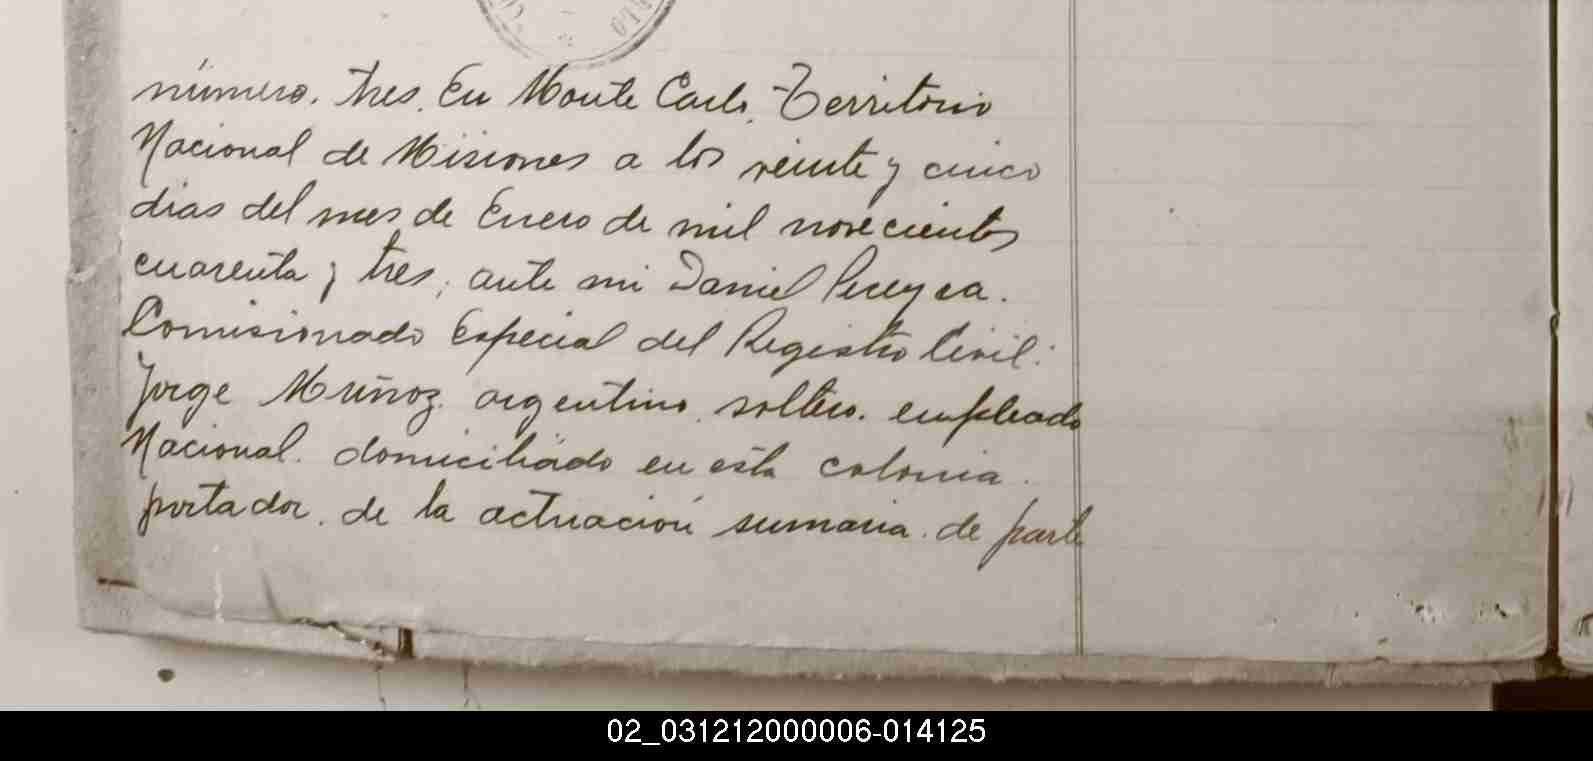 número. tres. En Monte Carlo. Territorio
Nacional de Misiones a los veinte y cinco
dias del mes de Enero de mil novecientos
cuarenta y tres, ante mi Daniel Pereyra.
Comisionado Especial del Registro Civil:
Jorge Muñoz. argentino. soltero. empleado
Nacional. domiciliado en esta colonia.
portador. de la actuación sumaria. de parte
02_031212000006-014125